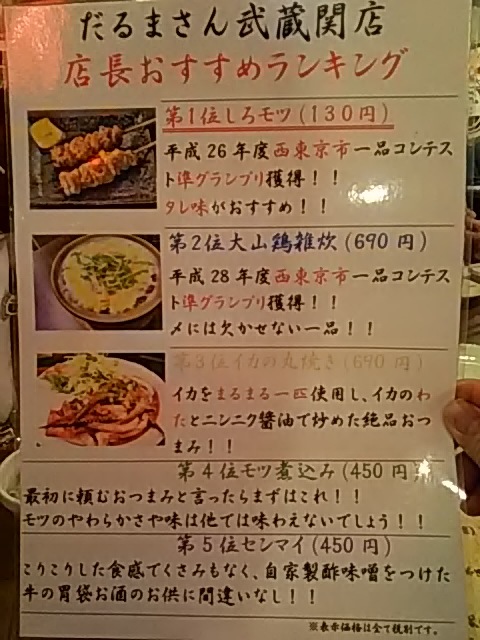 だるまさん武蔵関店
店長おすすめランキング
第1位しろモツ(130円)
平成26年度西東京市一品コンテス
ト準グランプリ獲得!!
タレ味がおすすめ!!
第2位大山鶏雑炊(690円)
平成28年度西東京市一品コンテス
ト準グランプリ獲得!!
〆には欠かせない一品!!
第3位イカの丸焼き(690円)
イカをまるまる一匹使用し、イカのわ
たとニンニク醤油で炒めた絶品おつ
まみ!!
第4位モツ煮込み(450円)
最初に頼むおつまみと言ったらまずはこれ!!
モツのやわらかさや味は他では味わえないでしょう!!
第5位センマイ(450円)
こりこりした食感でくさみもなく、自家製酢味噌をつけた
牛の胃袋お酒のお供に間違いなし!!
※表示価格は全て税別です。